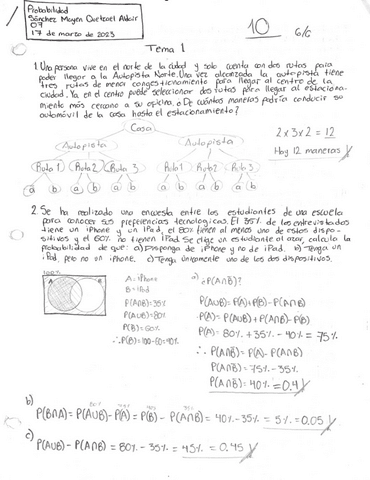 Probabilidad
Sánchez Mayen Quetzael Aldair
07
17 de marzo de 2023
10
6/6
Tema 1
1. Una persona vive en el norte de la ciudad y solo cuenta con dos rutas para
poder llegar a la Autopista Norte. Una vez alcanzada la autopista tiene
tres rutas de menor congestionamiento para llegar al centro de la
ciudad. Ya en el centro puede seleccionar dos rutas para llegar al estaciona-
miento más cercano a su oficina. ¿De cuántas maneras podría conducir su
automóvil de la casa hasta el estacionamiento?
Casa
Autopista Autopista
Ruta 1 Ruta 2 Ruta 3 Ruta 1 Ruta 2 Ruta 3
a b a b a b a b a b a b
2x3x2=12
Hay 12 maneras
2. Se ha realizado una encuesta entre los estudiantes de una escuela
para conocer sus preferencias tecnologicas. El 35% de los entrevistados
tiene un iPhone y un iPad, el 80% tienen al menos uno de estos dispo-
sitivos y el 60% no tienen iPad. Se elige un estudiante al azar, calcula la
probabilidad de que: a) Disponga de iPhone y no de iPad. b) Tenga un
iPad, pero no un iPhone. c) Tenga únicamente uno de los dos dispositivos.
100%
A = iPhone
B = iPad
P(A∩B)=35%
P(A∪B)=80%
P(B̅)=60%
∴P(B)=100-60=40%
a) ¿P(A∩B̅)?
P(A∪B)=P(A)+P(B)-P(A∩B)
P(A)=P(A∪B)+P(A∩B)-P(B)
P(A)=80%+35%-40%=75%
∴ P(A∩B̅)=P(A)-P(A∩B)
P(A∩B̅)=75%-35%
P(A∩B̅)=40%=0.4
b)
P(B∩A̅)=P(A∪B)-P(A)=P(B)-P(A∩B)=40%-35%=5%=0.05
c)
P(A∪B)-P(A∩B)=80%-35%=45%=0.45